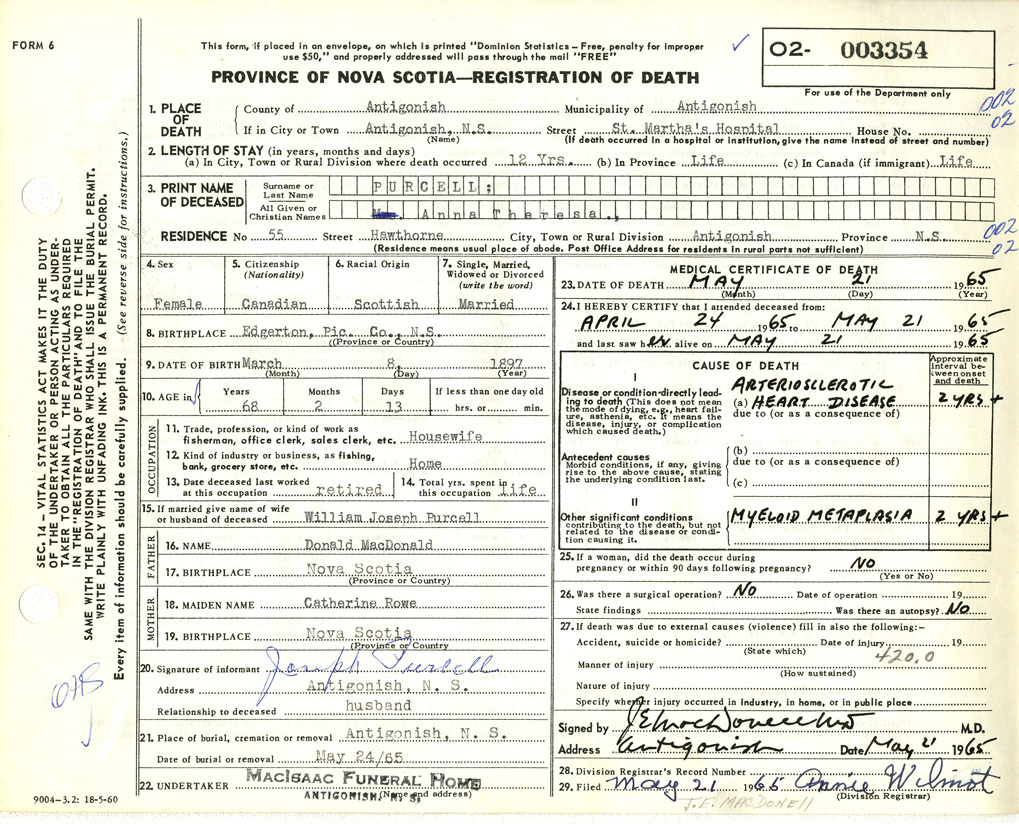 FORM 6
This form, if placed in an envelope, on which is printed "Dominion Statistics – Free, penalty for improper
use $50," and properly addressed will pass through the mail "FREE"
PROVINCE OF NOVA SCOTIA—REGISTRATION OF DEATH
O2- 003354
For use of the Department only
002
02
1. PLACE OF DEATH
County of Antigonish Municipality of Antigonish
If in City or Town Antigonish, N.S. Street St. Martha's Hospital House No.
(Name) (If death occurred in a hospital or institution, give the name instead of street and number)
2. LENGTH OF STAY (in years, months and days)
(a) In City, Town or Rural Division where death occurred 12 Yrs. (b) In Province Life (c) In Canada (if immigrant) Life
3. PRINT NAME OF DECEASED
Surname or Last Name PURCELL:
All Given or Christian Names Anna Theresa.,
RESIDENCE No 55 Street Hawthorne City, Town or Rural Division Antigonish Province N.S.
002
02
(Residence means usual place of abode. Post Office Address for residents in rural parts not sufficient)
4. Sex
Female
5. Citizenship
(Nationality)
Canadian
6. Racial Origin
Scottish
7. Single, Married,
Widowed or Divorced
(write the word)
Married
8. BIRTHPLACE Edgerton, Pic. Co., N.S.
(Province or Country)
9. DATE OF BIRTH March 8, 1897
(Month) (Day) (Year)
10. AGE in
Years Months Days If less than one day old
68 2 13 hrs. or min.
OCCUPATION
11. Trade, profession, or kind of work as
fisherman, office clerk, sales clerk, etc. Housewife
12. Kind of industry or business, as fishing,
bank, grocery store, etc. Home
13. Date deceased last worked
at this occupation retired
14. Total yrs. spent in
this occupation life
15. If married give name of wife
or husband of deceased William Joseph Purcell
FATHER
16. NAME Donald MacDonald
17. BIRTHPLACE Nova Scotia
(Province or Country)
MOTHER
18. MAIDEN NAME Catherine Rowe
19. BIRTHPLACE Nova Scotia
(Province or Country)
20. Signature of informant Joseph Purcell
Address Antigonish, N. S.
Relationship to deceased husband
21. Place of burial, cremation or removal Antigonish, N. S.
Date of burial or removal May 24/65
22. UNDERTAKER MACISAAC FUNERAL HOME
ANTIGONISH, N. S.
(Name and address)
MEDICAL CERTIFICATE OF DEATH
23. DATE OF DEATH MAY 21 1965
(Month) (Day) (Year)
24. I HEREBY CERTIFY that I attended deceased from:
APRIL 24 1965 to MAY 21 1965
and last saw her alive on MAY 21 1965
CAUSE OF DEATH
Approximate
interval be-
tween onset
and death
I
Disease or condition directly lead-
ing to death (This does not mean
the mode of dying, e.g., heart fail-
ure, asthenia, etc. It means the
disease, injury, or complication
which caused death.)
ARTERIOSCLEROTIC
(a) HEART DISEASE 2 YRS +
due to (or as a consequence of)
Antecedent causes
Morbid conditions, if any, giving
rise to the above cause, stating
the underlying condition last.
(b)
due to (or as a consequence of)
(c)
II
Other significant conditions
contributing to the death, but not
related to the disease or condi-
tion causing it.
MYELOID METAPLASIA 2 YRS +
25. If a woman, did the death occur during
pregnancy or within 90 days following pregnancy? NO
(Yes or No)
26. Was there a surgical operation? NO Date of operation 19
State findings Was there an autopsy? NO
27. If death was due to external causes (violence) fill in also the following:–
Accident, suicide or homicide? Date of injury 19
(State which)
420.0
Manner of injury
(How sustained)
Nature of injury
Specify whether injury occurred in industry, in home, or in public place
Signed by J E MacDonell MD M.D.
Address Antigonish Date May 21 1965
28. Division Registrar's Record Number
29. Filed May 21 1965 Annie Wilmot
(Division Registrar)
J.E. MACDONELL
9004-3.2: 18-5-60
SEC. 14 – VITAL STATISTICS ACT MAKES IT THE DUTY
OF THE UNDERTAKER OR PERSON ACTING AS UNDER-
TAKER TO OBTAIN ALL THE PARTICULARS REQUIRED
IN THE "REGISTRATION OF DEATH" AND TO FILE THE
SAME WITH THE DIVISION REGISTRAR WHO SHALL ISSUE THE BURIAL PERMIT.
WRITE PLAINLY WITH UNFADING INK. THIS IS A PERMANENT RECORD.
Every item of information should be carefully supplied. (See reverse side for instructions.)